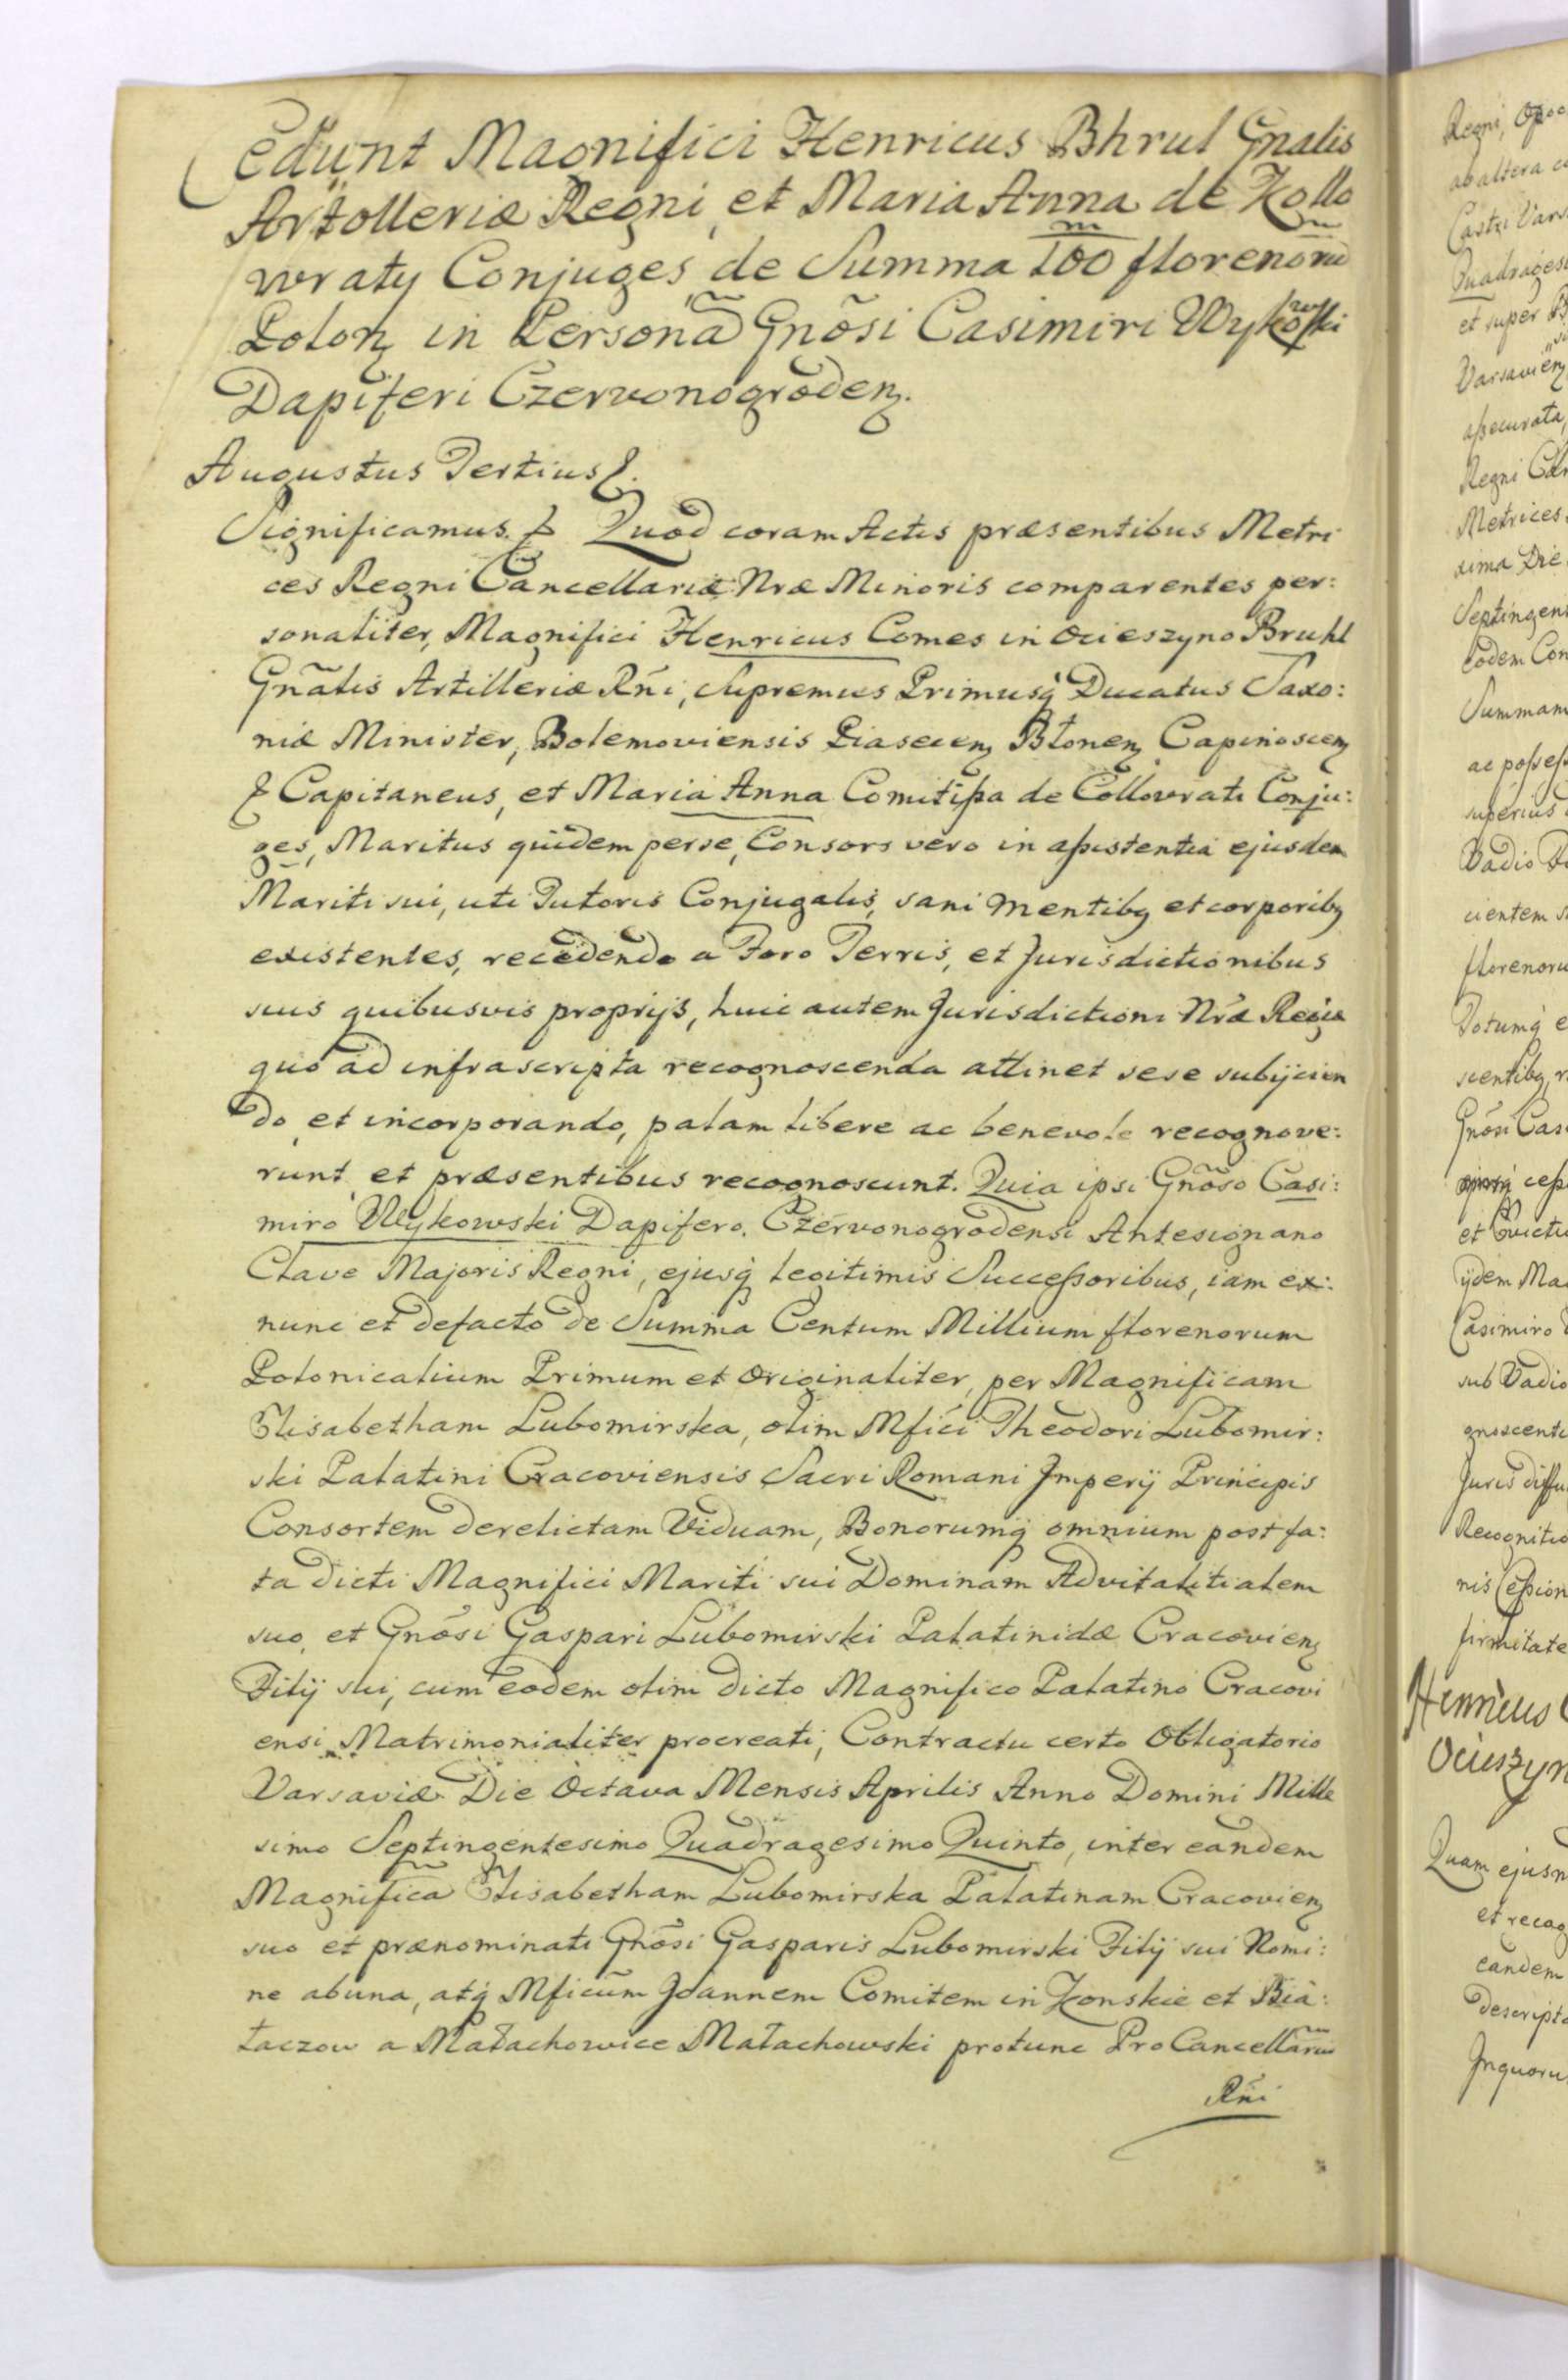 Cedunt Magnifici Henricus Bhrul Gnalis
Artolleriæ Regni, et Maria Anna de Kollo
wraty Conjuges de Summa 100 florenorū
Polon in Personã Gnõsi Casimiri Wykowski
Dapiferi Czerwonogroden.
Augustus Tertius
Significamus Quod coram Actis præsentibus Metri
ces Regni Cancellariæ Nræ Minoris comparentes per:
sonaliter, Magnifici Henricus Comes in Ocieszyno Bruhl
Gnãlis Artilleriæ Rñi, Supremus Primusq Ducatus Saxo:
niæ Minister, Bolemoviensis Piasecen Błonen Capinoscen
& Capitaneus, et Maria Anna Comitissa de Collowrati Conju:
ges, Maritus quidem perse, Consors vero in assistentia ejusdem
Mariti sui, uti Tutoris Conjugalis, sani mentibq et corporibq
existentes, recedendo a Foro Terris, et Jurisdictionibus
suis quibusvis proprijs, huic autem Jurisdictioni Nræ Regiæ
quo ad infrascripta recognoscenda attinet sese subijcien
do et incorporando, palam libere ac benevole recognove:
runt et præsentibus recognoscunt. Quia ipsi Gnõso Casi:
miro Wykowski Dapifero Czerwonogrodensi Antesignano
Clavæ Majoris Regni, ejusq legitimis Successoribus, iam ex:
nunc et defacto de Summa Centum Millium florenorum
Polonicalium Primum et Originaliter, per Magnificam
Elisabetham Lubomirska, olim Mfici Theodori Lubomir:
ski Palatini Cracoviensis Sacri Romani Imperij Principis
Consortem derelictam Viduam, Bonorumq omnium post fa:
ta dicti Magnifici Mariti sui Dominam Advitalitialem
suo, et Gnõsi Gaspari Lubomirski Palatinidæ Cracovien
Filij sui, cum eodem olim dicto Magnifico Palatino Cracovi
ensi Matrimonialiter procreati, Contractu certo Obligatorio
Varsaviæ Die Octava Mensis Aprilis Anno Domini Mille
simo Septingentesimo Quadragesimo Quinto, inter eandem
Magnificã Elisabetham Lubomirska Palatinam Cracovien
suo et prænominati Gnõsi Gasparis Lubomirski Filij sui Nomi:
ne abuna, atq Mficũm Joannem Comitem in Konskie et Bia:
łaczow a Małachowice Małachowski protunc ProCancellariũ
Rñi
Regni,
ab altera
Quadrages
et super
Varsavien
assecurata,
Regni
Metrices
xima Die
Septingen
eodem Con
Summam
ac posses
superius
Vadio
cientem
florenoru
Totumq e
scentibq
Gnõsi Cas
cess
et Evicti
ijdem Ma
Casimiro
sub Vadio
gnoscenti
Juris diffu
Recognitio
nis Cession
firmitate
Henricus
Ocieszyn
Quam ejusm
et recog
eandem
descripto
Inquoru